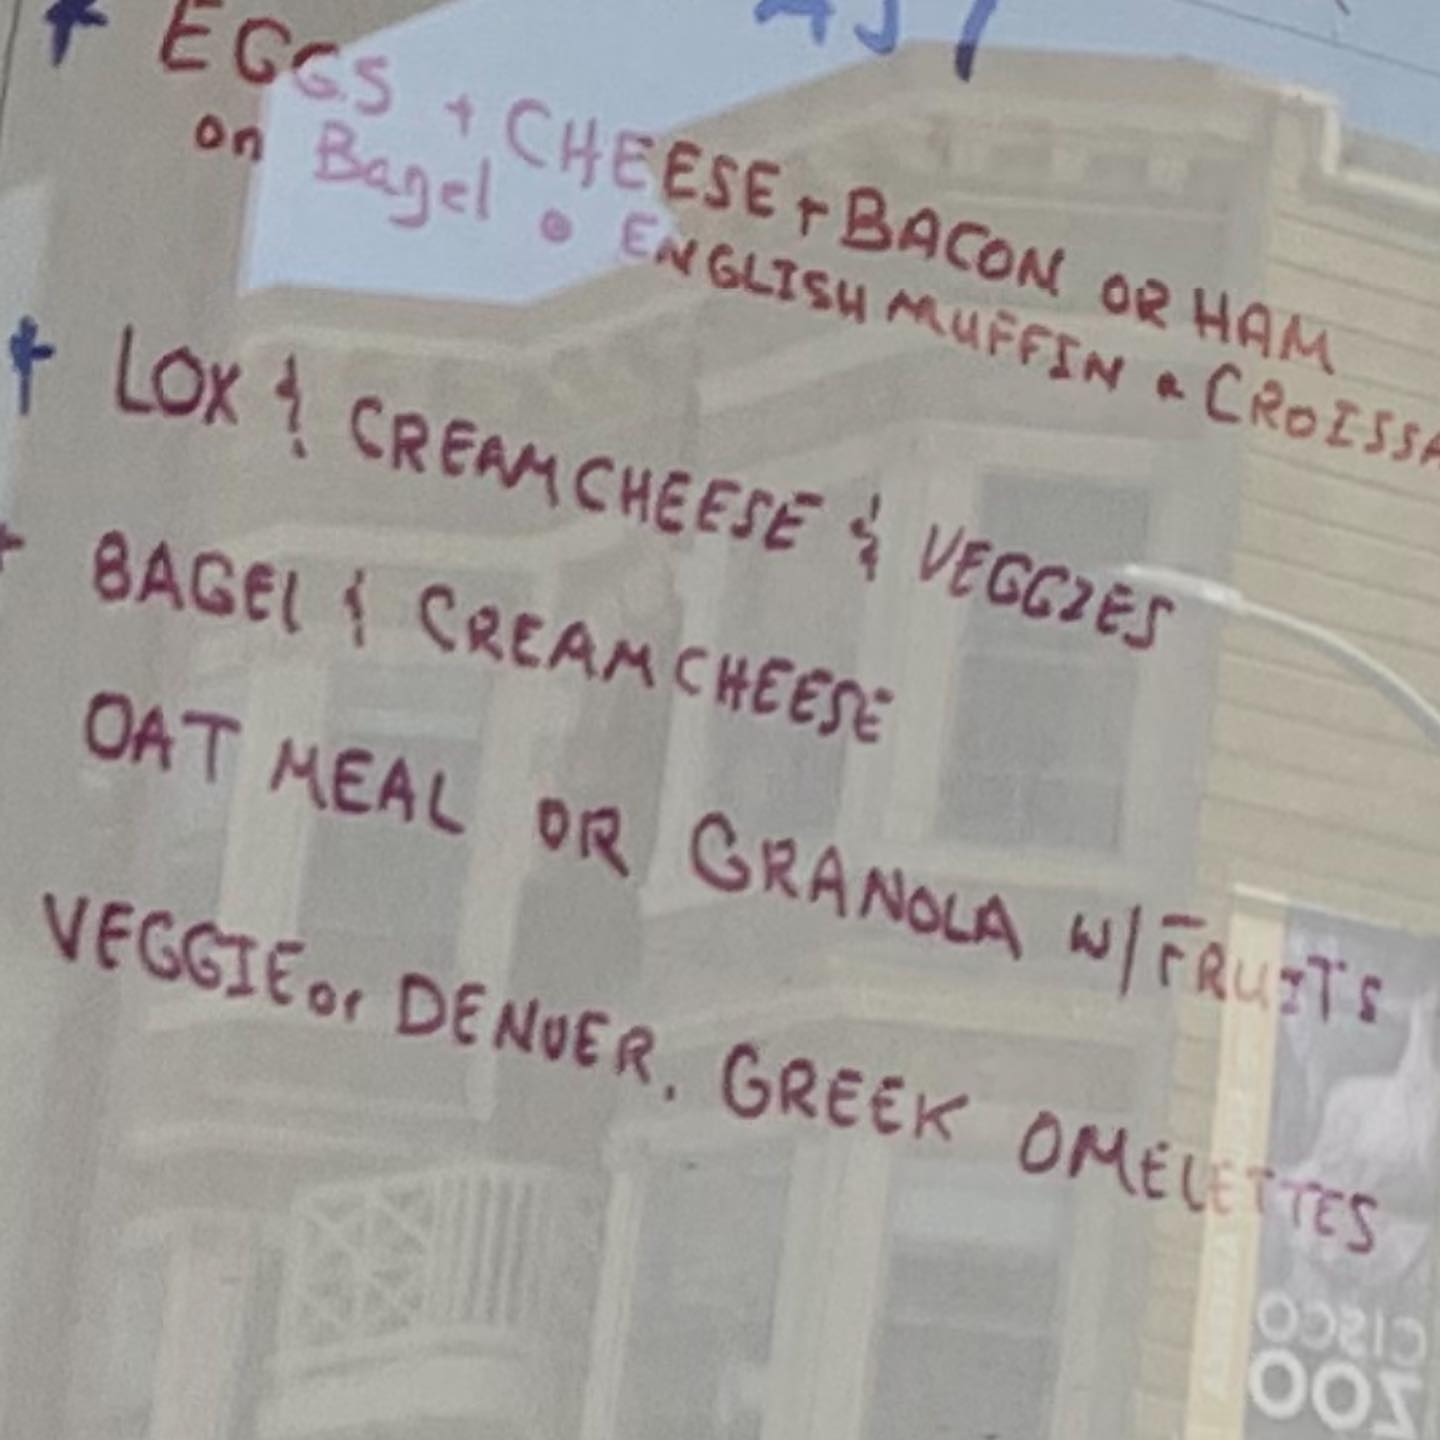 AST
* EGGS + CHEESE + BACON OR HAM
on Bagel • ENGLISH MUFFIN • CROISSA
+ LOX & CREAMCHEESE & VEGGIES
+ BAGEl & CREAM CHEESE
OAT MEAL OR GRANOLA W/FRUITS
VEGGIE or DENVER. GREEK OMELETTES
CISCO
ZOO